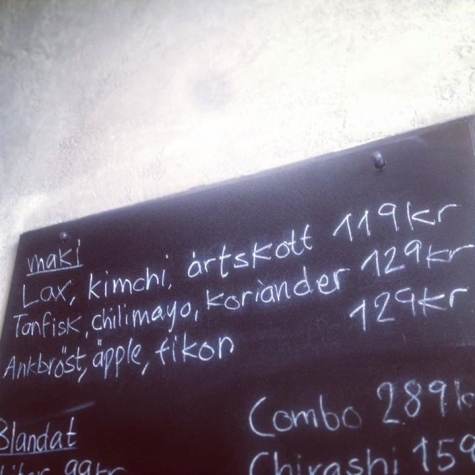 maki
Lax, kimchi, ärtskott 119kr
Tonfisk, chilimayo, koriander 129kr
Ankbröst, äpple, fikon 129kr
Blandat
Combo 289k
99kr
Chirashi 159